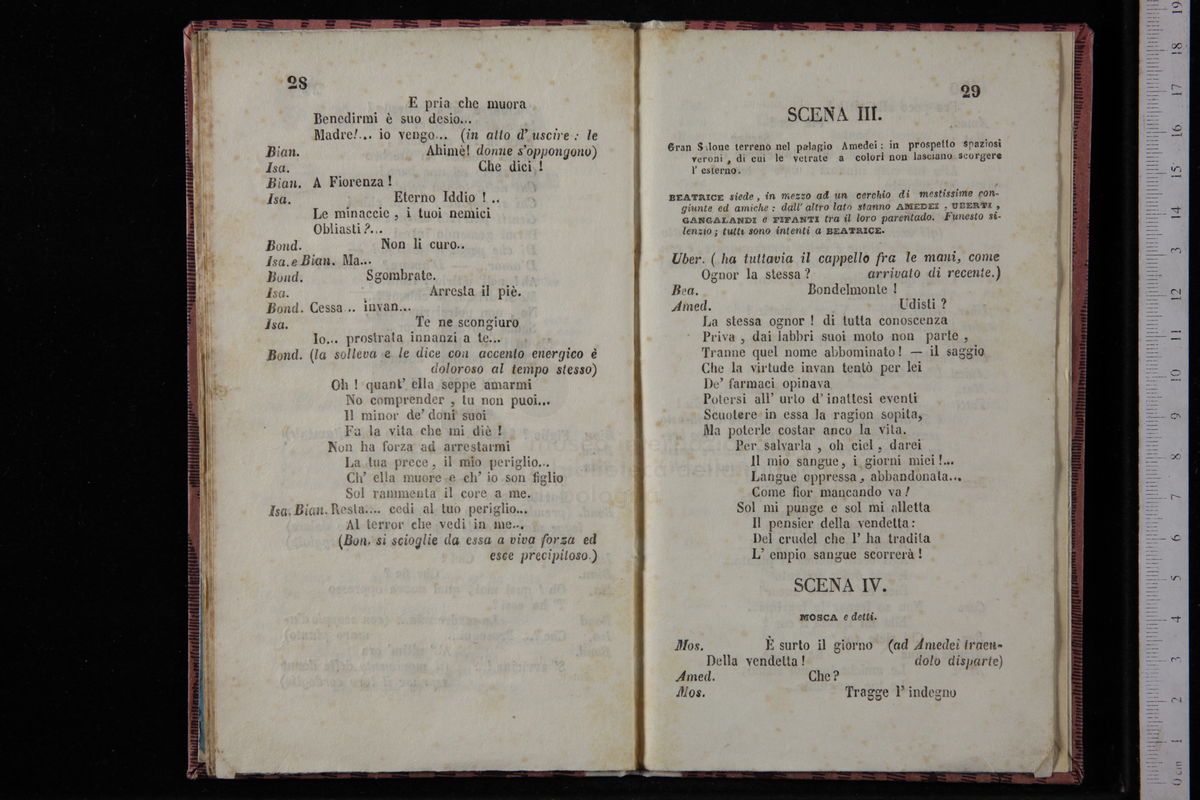 28
E pria che muora
Benedirmi è suo desio...
Madre!... io vengo... (in atto d' uscire: le
Bian. Ahimè! donne s'oppongono)
Isa. Che dici!
Bian. A Fiorenza!
Isa. Eterno Iddio!..
Le minaccie, i tuoi nemici
Obliasti?...
Bond. Non li curo..
Isa. e Bian. Ma...
Bond. Sgombrate.
Isa. Arresta il piè.
Bond. Cessa .. invan...
Isa. Te ne scongiuro
Io... prostrata innanzi a te...
Bond. (la solleva e le dice con accento energico è
doloroso al tempo stesso)
Oh! quant' ella seppe amarmi
No comprender, tu non puoi...
Il minor de' doni suoi
Fu la vita che mi diè!
Non ha forza ad arrestarmi
La tua prece, il mio periglio...
Ch' ella muore e ch' io son figlio
Sol rammenta il core a me.
Isa. Bian. Resta.... cedi al tuo periglio...
Al terror che vedi in me...
(Bon. si scioglie da essa a viva forza ed
esce precipitoso.)
29
SCENA III.
Gran Salone terreno nel palagio Amedei: in prospetto spaziosi
veroni, di cui le vetrate a colori non lasciano scorgere
l' esterno.
BEATRICE siede, in mezzo ad un cerchio di mestissime con-
giunte ed amiche: dall' altro lato stanno AMEDEI, UBERTI,
GANGALANDI e FIFANTI tra il loro parentado. Funesto si-
lenzio; tutti sono intenti a BEATRICE.
Uber. (ha tuttavia il cappello fra le mani, come
Ognor la stessa? arrivato di recente.)
Bea. Bondelmonte!
Amed. Udisti?
La stessa ognor! di tutta conoscenza
Priva, dai labbri suoi moto non parte,
Tranne quel nome abbominato! — il saggio
Che la virtude invan tentò per lei
De' farmaci opinava
Potersi all' urto d' inattesi eventi
Scuotere in essa la ragion sopita,
Ma poterle costar anco la vita.
Per salvarla, oh ciel, darei
Il mio sangue, i giorni miei!...
Langue oppressa, abbandonata...
Come fior mancando va!
Sol mi punge e sol mi alletta
Il pensier della vendetta:
Del crudel che l' ha tradita
L' empio sangue scorrerà!
SCENA IV.
MOSCA e detti.
Mos. È surto il giorno (ad Amedei traen-
Della vendetta! dolo disparte)
Amed. Che?
Mos. Tragge l' indegno